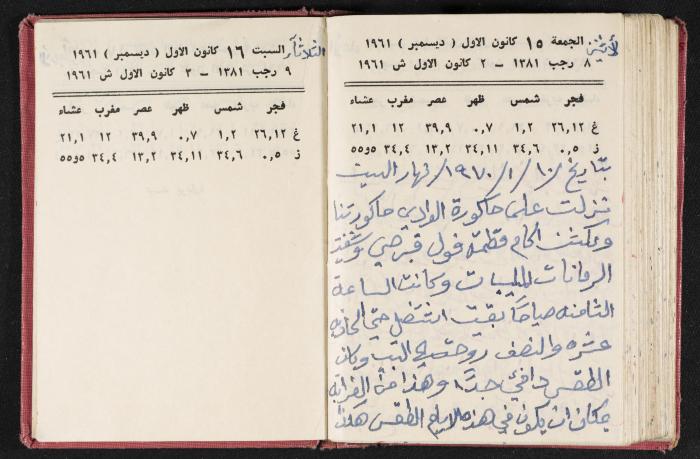 الأثنين
الجمعة ١٥ كانون الاول ( ديسمبر ) ١٩٦١
٨ رجب ١٣٨١ – ٢ كانون الاول ش ١٩٦١
فجر شمس ظهر عصر مغرب عشاء
غ ٢٦,١٢ ١,٢ ٠,٧ ٣٩,٩ ١٢ ٢١,١
ز ٠,٥ ٣٤,٦ ٣٤,١١ ١٣,٢ ٣٤,٤ ٥و٥٥
بتاريخ /١٠/١/١٩٧٠/ نهار السبت
نزلت على حاكورة الوادي حاكورتنا
قطمة فول قبرصي
الرمانات وكانت الساعة
الثامنه صباحاً بقيت اشتغل حتى الحاديه
عشره والنصف روحت الى البيت وكان
الطقس دافئ جداً وهذا من الغرابه
مكان ان يكون في هذه الايام الطقس هكذا
الثلاثاء
السبت ١٦ كانون الاول ( ديسمبر ) ١٩٦١
٩ رجب ١٣٨١ – ٣ كانون الاول ش ١٩٦١
فجر شمس ظهر عصر مغرب عشاء
غ ٢٦,١٢ ١,٢ ٠,٧ ٣٩,٩ ١٢ ٢١,١
ز ٠,٥ ٣٤,٦ ٣٤,١١ ١٣,٢ ٣٤,٤ ٥و٥٥